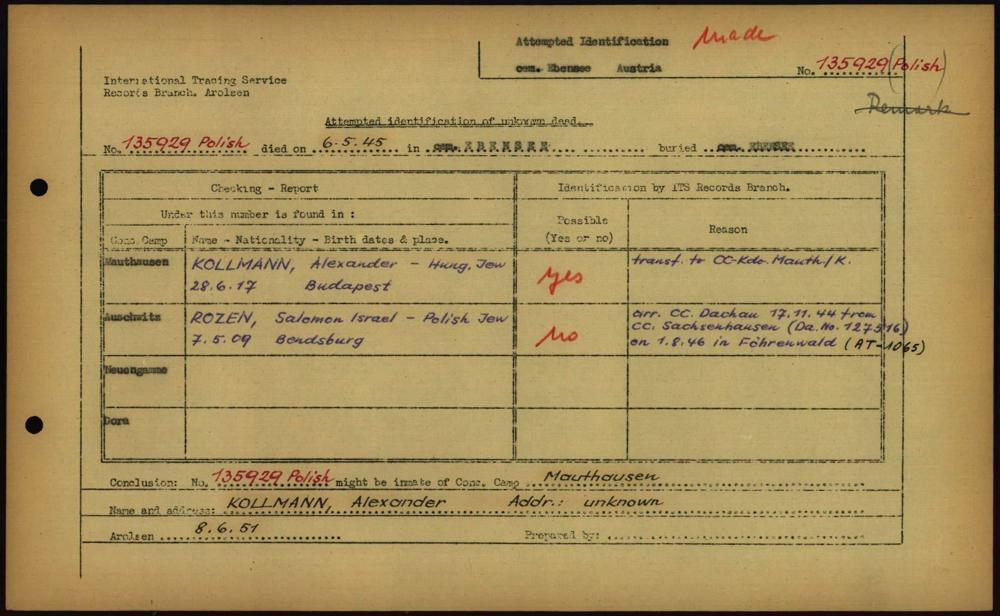 Attempted Identification Made
cem. Ebensee Austria
No. 135929 (Polish)
International Tracing Service
Records Branch. Arolsen
Remark
Attempted identification of unknown dead.
No. 135929 Polish died on 6.5.45 in cem. EBENSEE buried cem. EBENSEE
Checking - Report
Identification by ITS Records Branch.
Under this number is found in :
Possible
(Yes or no)
Reason
Conc. Camp
Name - Nationality - Birth dates & place.
Mauthausen
KOLLMANN, Alexander - Hung. Jew
28.6.17 Budapest
yes
transf. to CC-Kdo. Mauth/K.
Auschwitz
ROZEN, Salomon Israel - Polish Jew
7.5.09 Bendsburg
no
arr. CC. Dachau 17.11.44 from
CC. Sachsenhausen (Da. No. 127516)
on 1.8.46 in Föhrenwald (AT-1065)
Neuengamme
Dora
Conclusion: No. 135929 Polish might be inmate of Conc. Camp Mauthausen
Name and address: KOLLMANN, Alexander Addr.: unknown
Arolsen 8.6.51 Prepared by: